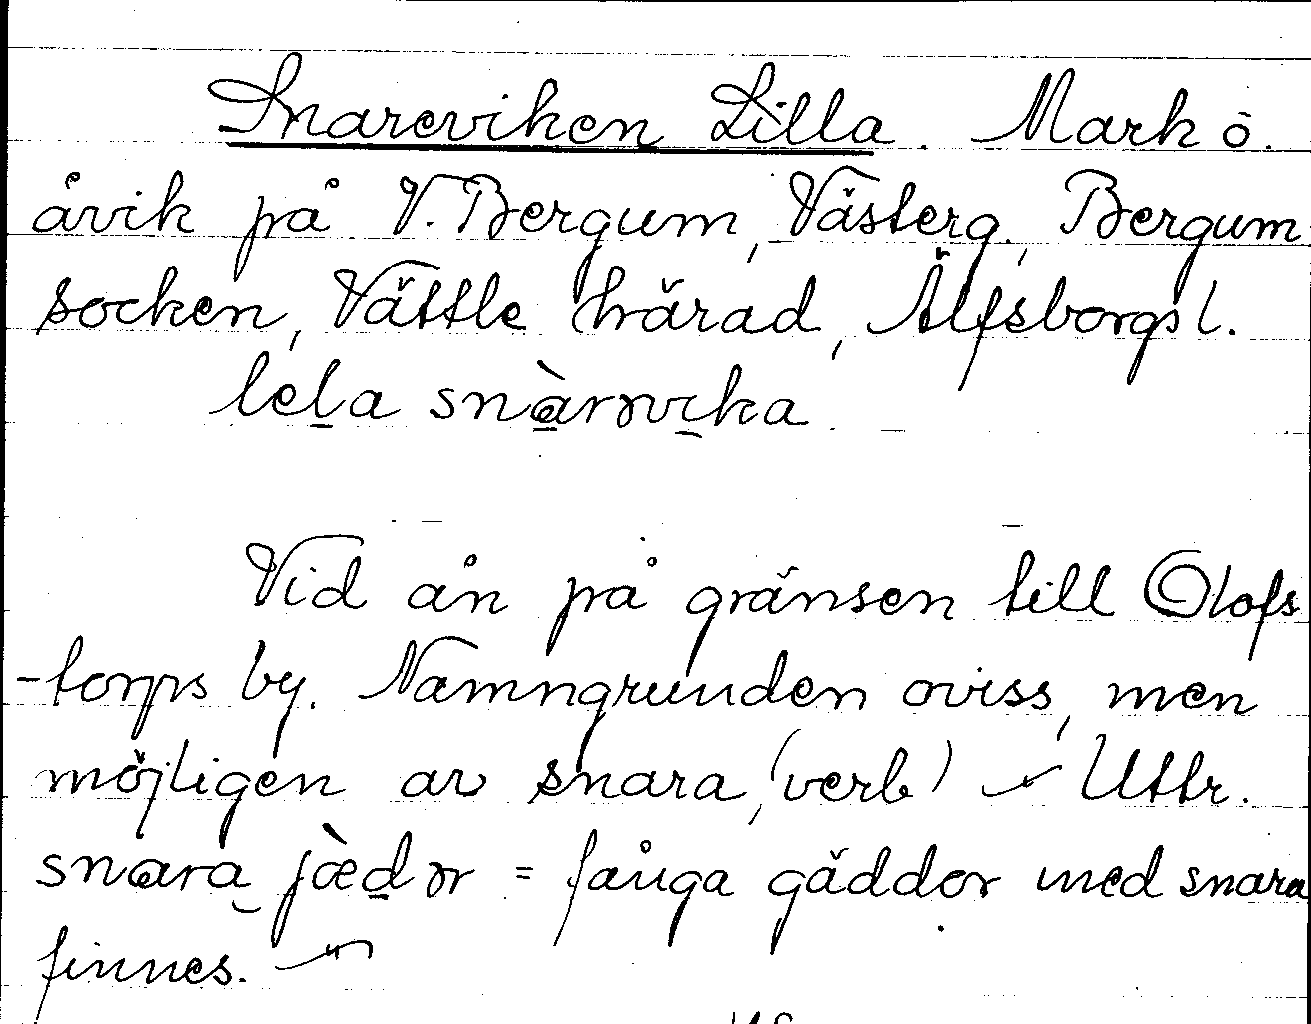 Snareviken Lilla. Mark o.
åvik på V. Bergum, Västerg., Bergum
socken, Vättle härad, Älfsborgs l.
lela snàrəvika
Vid ån på gränsen till Olofs
-torps by. Namngrunden oviss, men
möjligen av snara, (verb) – Uttr.
snara jæ̀dər = fånga gäddor med snara
finnes. –"–